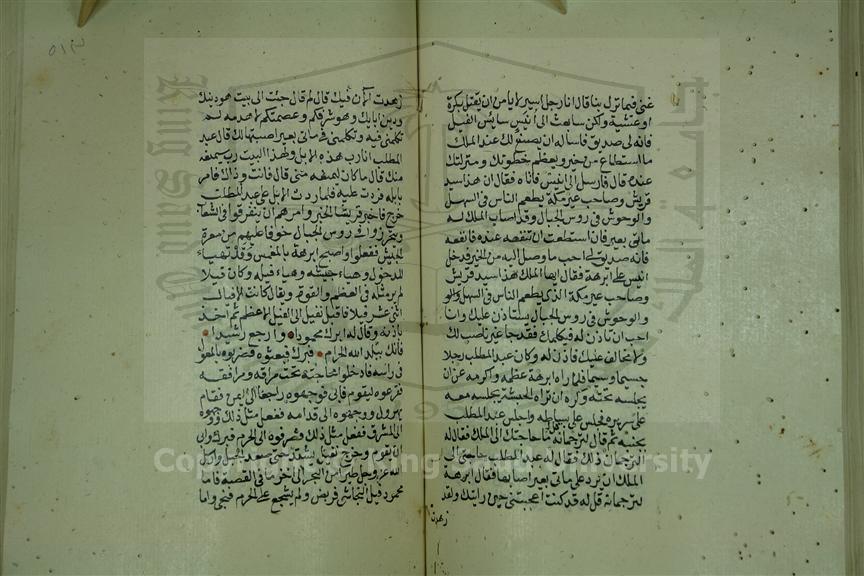 غنى فيما نزل بنا قال انا رجل اسير لا يامن ان يقتل بكرة
او عشية ولكن سابعث الى انيس سايس الفيل
فانه لى صديق فاساله ان يصنع لك عند الملك
ما استطاع من خير ويعظم خطوتك ومنزلتك
عنده قال فارسل الى انيس فاتاه فقال ان هذا سيد
قريش وصاحب عير مكة يطعم الناس فى السهل
والوحوش فى روس الجبال وقد اصاب الملك له
مائتى بعير فان استطعت ان تنفعه عنده فانفعه
فانه صديق لى احب ما وصل اليه من الخير فدخل
انيس على ابرهة فقال ايها الملك هذا سيد قريش
وصاحب عير مكة الذى يطعم الناس فى السهل
والوحوش فى روس الجبال يستاذن عليك وانا
احب ان تاذن له فيكلمك فقد جا غير ناصب لك
ولا مخالف عليك فاذن له وكان عبد المطلب رجلا
جسيما وسيما فلما راه ابرهة عظمه واكرمه عن ان
يجلسه تحته وكره ان تراه الحبشة يجلسه معه
على سريره فجلس على بساطه واجلس عبد المطلب
بجنبه ثم قال لترجمانه قل له ما حاجتك الى الملك فقال له
الترجمان ذلك فقال له عبد المطلب حاجتى الى
الملك ان يرد على مائتى بعير اصابها فقال ابرهة
لترجمانه قل له قد كنت اعجبتنى حين رايتك ولقد
زهدت
زهدت الان فيك قال لم قال جئت الى بيت هو دينك
ودين ابايك وهو شرفكم وعصمتكم لاهدمه لم
تكلمنى فيه وتكلمنى فى مائتى بعير اصبتها لك قال عبد
المطلب انا رب هذه الابل ولهذا البيت رب سيمنعه
منك قال ما كان ليمنعه منى قال فانت وذاك فامر
بابله فردت عليه فلما ردت الابل على عبد المطلب
خرج فاخبر قريشا الخبر وامرهم ان يتفرقوا فى الشعاب
ويتحرزوا فى روس الجبال خوفا عليهم من معرة
الجيش ففعلوا واصبح ابرهة بالمغمس وقد تهياء
للدخول وهياء جيشه وهياء فيله وكان فيلا
لم ير مثله فى العظم والقوة ويقال كانت الافيال
اثنى عشر فيلا فاقبل نفيل الى الفيل الاعظم ثم اخذ
باذنه وقال له ابرك محمود او ارجع راشدا
فانك ببلد الله الحرام فبرك فبعثوه فضربوه بالمعول
فى راسه فادخلوا محاجنه تحت مراقه ومرافقه
فنزعوه ليقوم فابى فوجهوه راجعا الى اليمن فقام
يهرول ووجهوه الى قدامه ففعل مثل ذلك ووجهوه
الى المشرق ففعل مثل ذلك وصرفوه الى الحرم فبرك وابى
ان يقوم وخرج نفيل يشتد حتى صعد الجبل وارسل
الله عز وجل طيرا من البحر الى اخر ما فى القصة فاما
محمود فيل النجاشى فربض ولم يشجع على الحرم فنجى واما
Copyright © King Saud University